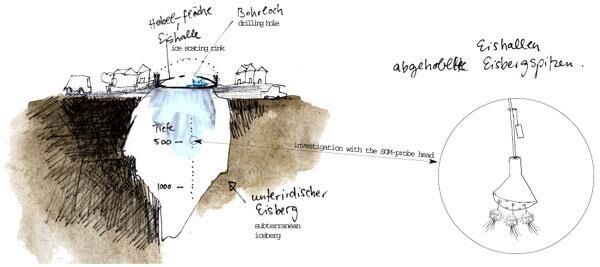 Hobel-fläche
Eishalle
ice scating rink
Bohrloch
drilling hole
Eishallen
abgehobelte Eisbergspitzen.
Tiefe
500
investigation with the SGM-probe head
1000
unterirdischer
Eisberg
subterranean
iceberg